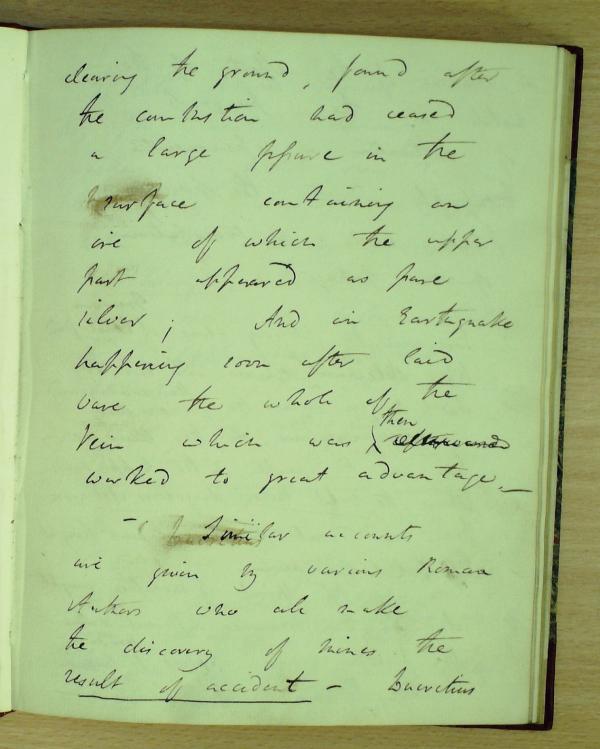 clearing the ground, found after
the combustion had ceased
a large fissure in the
surface containing an
ore of which the upper
part appeared as pure
silver; And an Earthquake
happening soon after laid
bare the whole of the
Vein which was then
worked to great advantage. —
– Similar accounts
are given by various Roman
Authors who all make
the discovery of mines the
result of accident – Lucretius